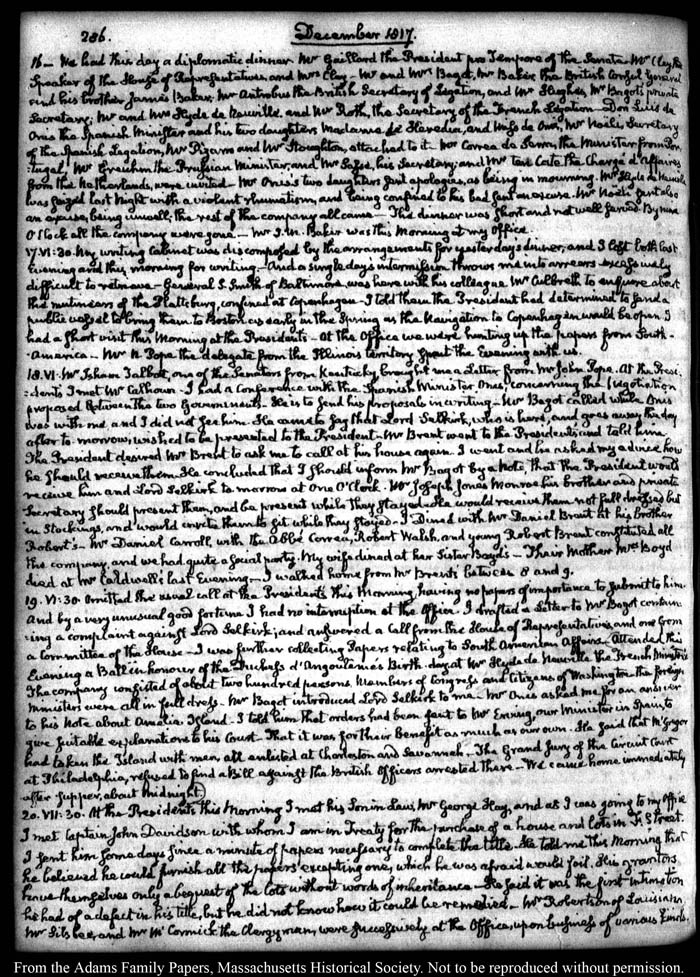 286. December 1817.
16— We had this day a diplomatic dinner Mr Gaillard the President pro Tempore of the Senate— Mr Clay the
Speaker of the House of Representatives, and Mrs Clay— Mr and Mrs Bagot, Mr Baker the British Consul General
and his brother James Baker. Mr Antrobus the British Secretary of Legation, and Mr Hughes, Mr Bagot's private
Secretary; Mr and Mrs Hyde de Neuville, and Mr Roth, the Secretary of the French Legation— Don Luis de
Onis the Spanish Minister and his two daughters Madame de Heredia, and Miss de Onis, Mr Noeli, Secretary
of the Spanish Legation, Mr Pizarro and Mr Stoughton, attached to it— Mr Correa de Serra, the Minister from Por-
-tugal, Mr Greuhm the Prussian Minister, and his Secretary; and Mr ten Cate the Charge d'Affaires
from the Netherlands, were invited— Mr Onis's two daughters sent apologies, as being in mourning. Mr Hyde de Neuville
was seized last Night with a violent rheumatism, and being confined to his bed sent an excuse. Mr Noeli sent also
an excuse, being unwell, the rest of the company all came— The dinner was short and not well served. By nine
O'Clock all the company were gone.— Mr J. M. Baker was this Morning at my Office.
17. VI:30. My writing Cabinet was discomposed by the arrangements for yesterday's dinner, and I lost both last
Evening and this morning for writing.— And a single day's intermission throws me into arrears excessively
difficult to retrieve— General S. Smith of Baltimore was here with his colleague Mr Culbreth to enquire about
the mutineers of the Plattsburg, confined at Copenhagen— I told them the President had determined to send a
public vessel to bring them to Boston as early in the Spring as the Navigation to Copenhagen would be open. I
had a short visit this Morning at the Presidents— At the Office we were hunting up the papers from South-
-America— Mr N. Pope the delegate from the Illinois territory spent the Evening with us.
18. VI. Mr Isham Talbot, one of the Senators from Kentucky brought me a Letter from Mr John Pope. At the Presi-
-dents I met Mr Calhoun— I had a Conference with the Spanish Minister Onis, concerning the Negotiation
proposed between the two Governments— He is to send his proposals in writing— Mr Bagot called while Onis
was with me, and I did not see him. He came to say that Lord Selkirk, who is here, and goes away the day
after to-morrow, wished to be presented to the President— Mr Brent went to the Presidents, and told him.
The President desired Mr Brent to ask me to call at his house again. I went and he asked my advice how
he should receive them. He concluded that I should inform Mr Bagot by a Note, that the President would
receive him and Lord Selkirk to morrow at One O'Clock. Mr Joseph Jones Monroe his brother and private
Secretary should present them, and be present while they stayed. He would receive them not full dressed but
in Stockings, and would invite them to sit while they stayed— I Dined with Mr Daniel Brent at his brother
Robert's— Mr Daniel Carroll, with the Abbé Correa, Robert Walsh, and young Robert Brent constituted all
the company, and we had quite a social party. My wife dined at her Sister Boyd's— Their Mother Mrs Boyd
died at Mr Caldwell's last Evening— I walked home from Mr Brent's between 8 and 9.
19. VI:30. Omitted the usual call at the Presidents this Morning, having no papers of importance to submit to him.
And by a very unusual good fortune I had no interruption at the Office. I drafted a Letter to Mr Bagot contain-
-ing a complaint against Lord Selkirk; and answered a Call from the House of Representatives, and one from
a Committee of the House— I was further collecting Papers relating to South American Affairs. Attended this
Evening a Ball in honour of the Duchess d'Angouleme's Birth-day at Mr Hyde de Neuville the French Minister's
The company consisted of about two hundred persons. Members of Congress and Citizens of Washington— the foreign
Ministers were all in full dress— Mr Bagot introduced Lord Selkirk to me— Mr Onis asked me for an answer
to his Note about Amelia Island— I told him that orders had been sent to Mr Erving, our Minister in Spain, to
give suitable explanations to his Court— That it was for their benefit as much as our own. He said that McGregor
had taken the Island with men all enlisted at Charleston and Savannah— The Grand Jury of the Circuit Court
at Philadelphia, refused to find a Bill against the British Officers arrested there— We came home immediately
after supper, about midnight.
20. VII:30. At the Presidents this Morning I met his Son in Law, Mr George Hay, and as I was going to my Office
I met Captain John Davidson with whom I am in Treaty for the purchase of a house and lots in F. Street.
I sent him some days since a minute of papers necessary to complete the title. He told me this Morning that
he believed he could furnish all the papers excepting one, which he was afraid would fail. His grantors
have themselves only a bequest of the lots without words of inheritance— He said it was the first intimation
he had of a defect in his title, but he did not know how it could be remedied— Mr Robertson of Louisiana,
Mr Silsbee, and Mr McCormick the Clergyman, were successively at the Office, upon business of various kinds.
From the Adams Family Papers, Massachusetts Historical Society. Not to be reproduced without permission.